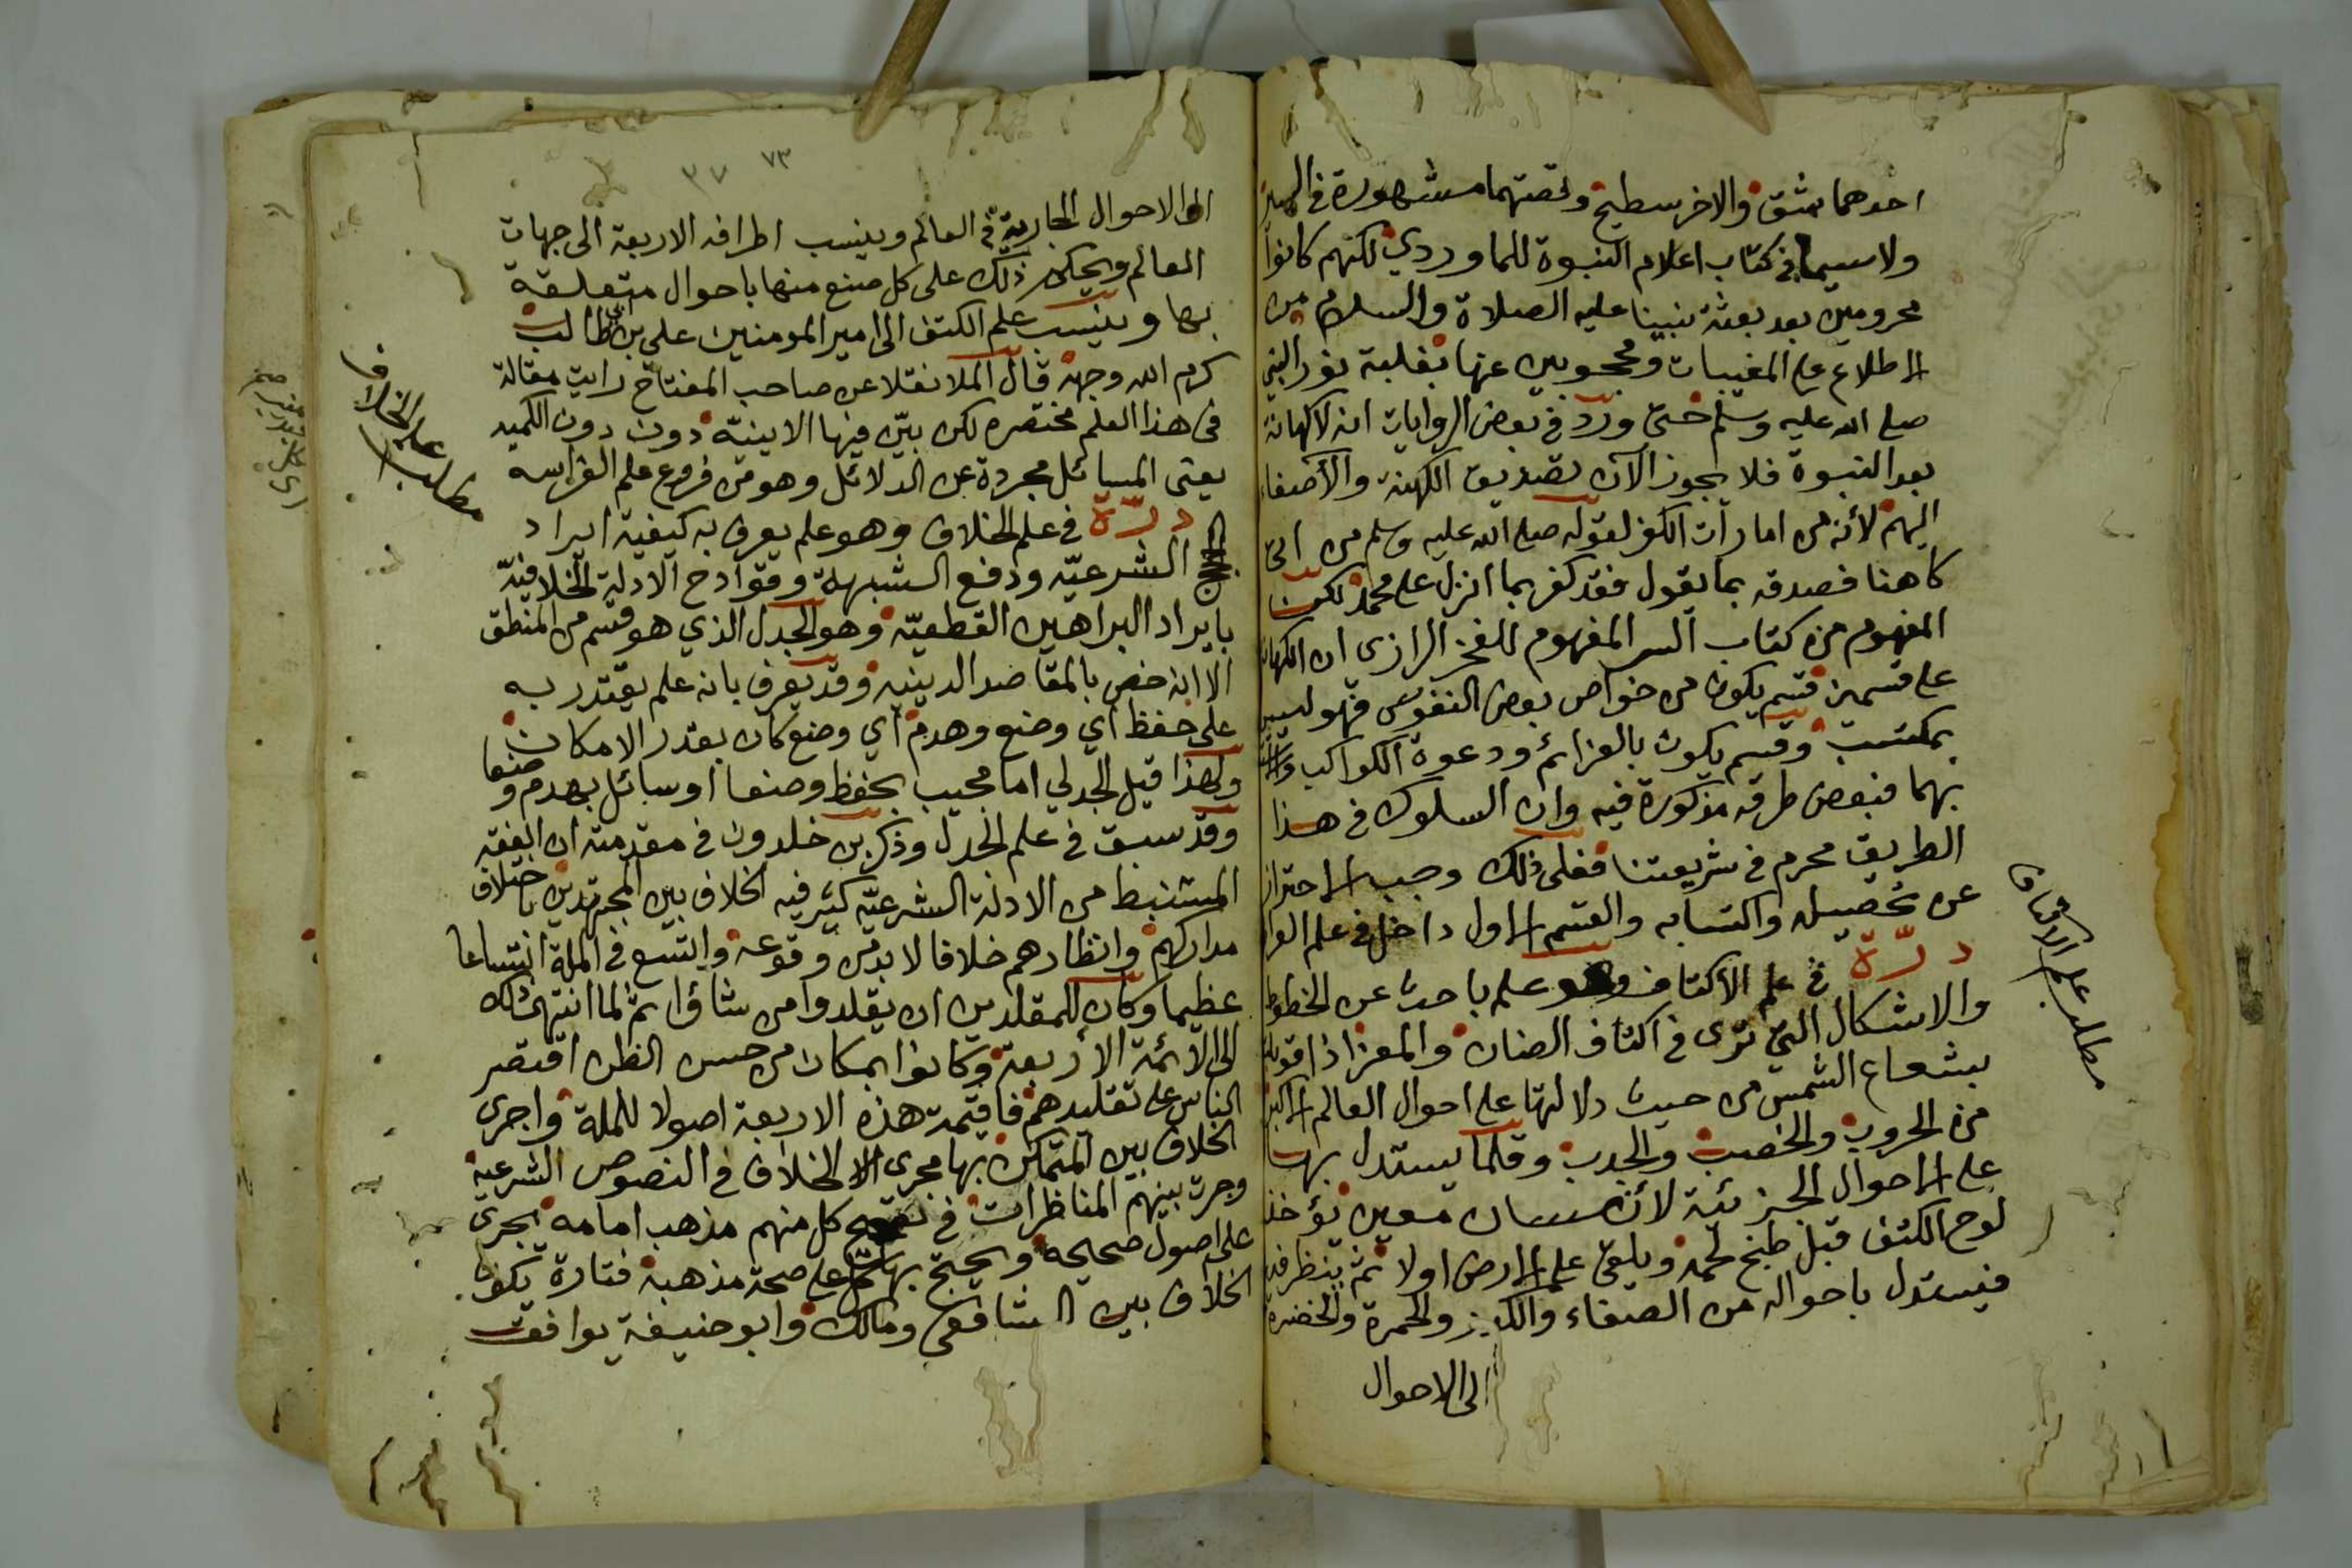 احدهما شق والاخر سطيح وقصتهما مشهورة في السير
ولا سيما في كتاب اعلام النبوة للماوردي لكنهم كانوا
محرومين بعد بعثة نبينا عليه الصلاة والسلام من
الاطلاع على المغيبات ومحجوبين عنها بغلبة نور النبي
صلى الله عليه وسلم حتى ورد في بعض الروايات انه لا كهانة
بعد النبوة فلا يجوز الآن تصديق الكهنة والأصغاء
اليهم لأنه من امارات الكفر لقوله صلى الله عليه وسلم من اتى
كاهنا فصدقه بما يقول فقد كفر بما انزل على محمد لكن
المفهوم من كتاب السر المفهوم للفخر الرازى ان الكهانة
على قسمين قسم يكون من خواص بعض النفوس فهو ليس
بمكتسب وقسم يكون بالعزائم ودعوة الكواكب
بهما فبعض طرقه مذكورة فيه وان السلوك في هذا
الطريق محرم في شريعتنا فعلى ذلك وجب الاحتراز
عن تحصيله واكتسابه والقسم الاول داخل في علم
درّة في علم الأكتاف وهو علم باحث عن الخطوط
والاشكال التي ترى في اكتاف الضان والمعز اذا قوبلت
بشعاع الشمس من حيث دلالتها على احوال العالم الاكبر
من الحروب والخصب والجدب وقلما يستدل بها
على الاحوال الجزئية لأنسان معين يؤخذ
لوح الكتف قبل طبخ لحمه ويلقى على الارض اولا ثم ينظر فيه
فيستدل باحواله من الصفاء والكدر والحمرة والخضرة
الى الاحوال
مطلب علم الاكتاف
٧٣
٣٧
الى الاحوال الجارية في العالم وينسب اطرافه الاربعة الى جهات
العالم ويحكم ذلك على كل صنع منها باحوال متعلقة
بها وينسب علم الكتف الى امير المومنين على بن ابي طالب
كرم الله وجهه قال الملا نقلا عن صاحب المفتاح رايت مقالة
في هذا العلم مختصره لكن بيّن فيها الاينيّه دون دون اللميه
يعنى المسائل مجردة عن الدلائل وهو من فروع علم الفراسه
درّة في علم الخلاف وهو علم يعرف به كيفية ايراد
الشرعيّه ودفع الشبهة وقوادح الادلة الخلافيّه
بايراد البراهين القطعيّه وهو الجدل الذي هو قسم من المنطق
الا انه خص بالمقاصد الدينيه وقد يعرف بانه علم يقتدر به
على حفظ اي وضع وهدم اي وضع كان بقدر الامكان
ولهذا قيل الجدلي اما مجيب يحفظ وضعا اوسائل يهدم وضعا
وقد سبق في علم الجدل وذكر بن خلدون في مقدمته ان الفقه
المستنبط من الادلة الشرعيّه كثر فيه الخلاف بين المجتهدين باختلاف
مداركهم وانظارهم خلافا لا بد من وقوعه واتسع في الملة اتساعا
عظيما وكان للمقلدين ان يقلدوا من شاؤا ثم لما انتهى ذلك
الى الأئمة الأربعة وكانوا بمكان من حسن الظن اقتصر
الناس على تقليدهم فاقيمت هذه الاربعة اصولا للملة واجرى
الخلاف بين المتمكن بها مجرى الخلاف في النصوص الشرعيه
وجرت بينهم المناظرات في تصحيح كل منهم مذهب امامه يجرى
على اصول صحيحه ويحتج بها كل على صحة مذهبه فتارة تكون
الخلاف بين الشافعي ومالك وابو حنيفة يوافق
مطلب علم الخلاف